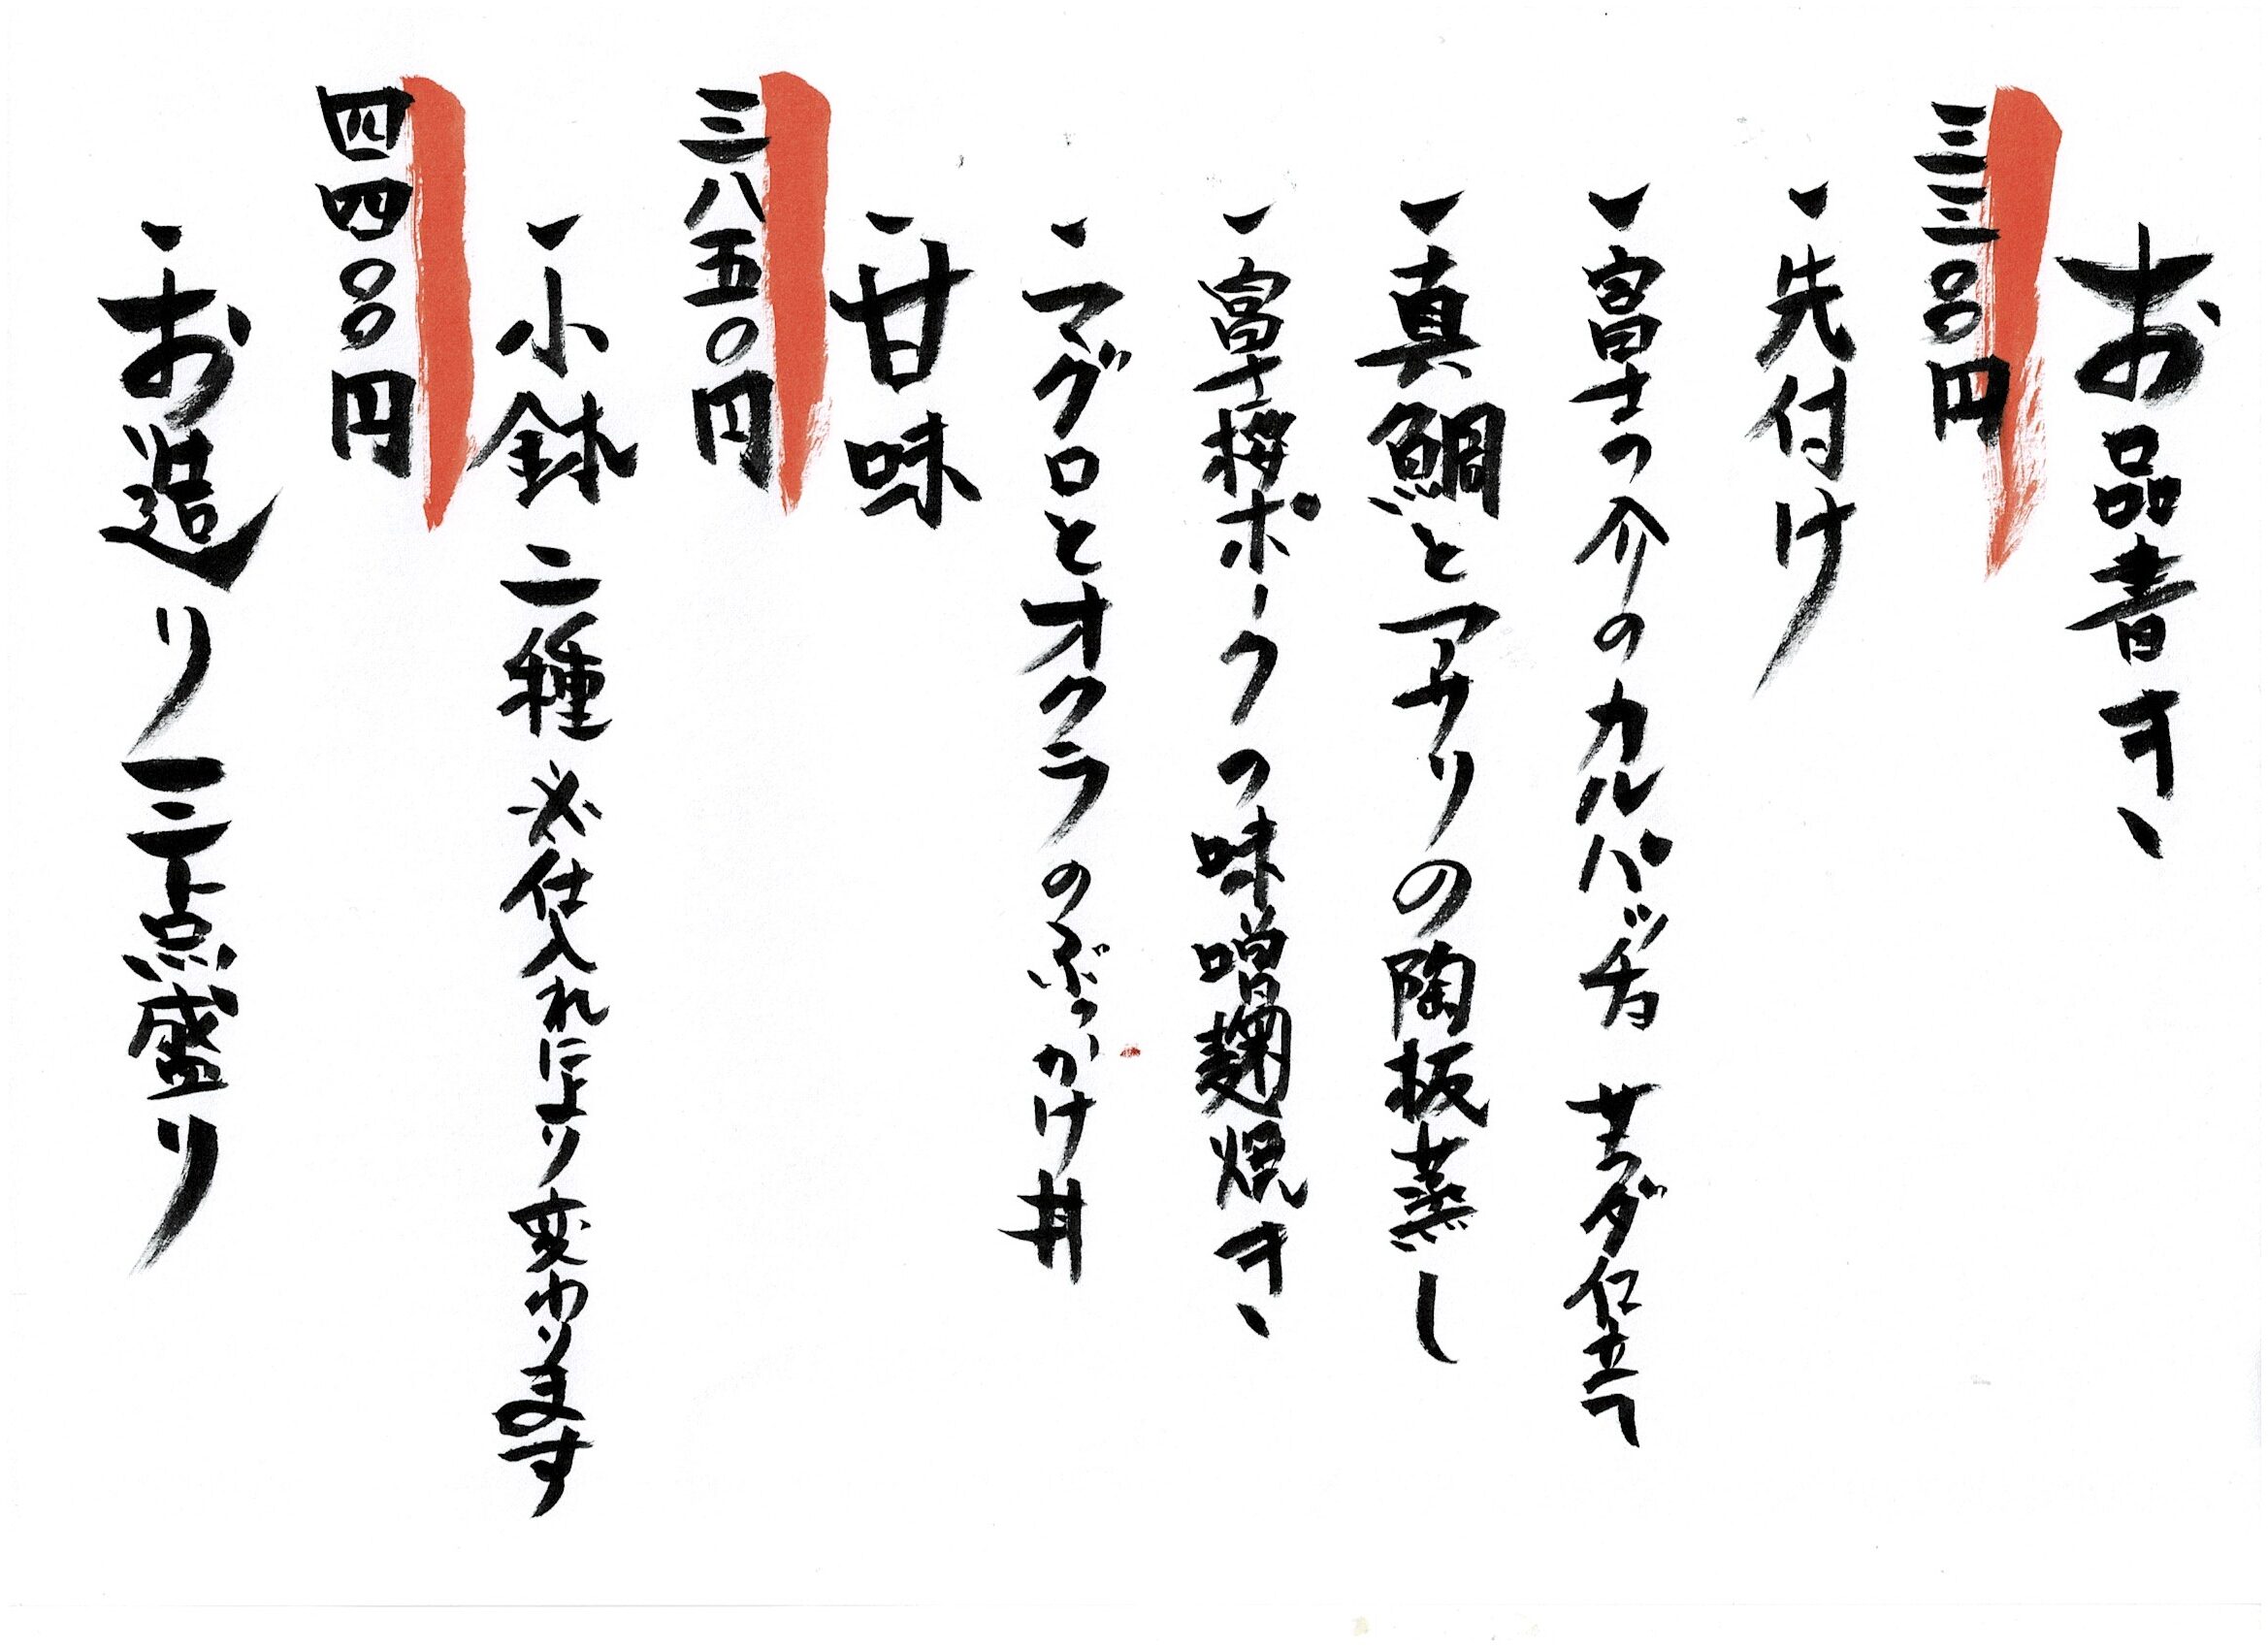 お品書き
三三〇〇円
・先付け
・富士の介のカルパッチョ サラダ仕立て
・真鯛とアサリの陶板蒸し
・富士桜ポークの味噌麹焼き
・マグロとオクラのぶっかけ丼
・甘味
三八五〇円
・小鉢二種 ※仕入れにより変わります
四四〇〇円
・お造り三点盛り